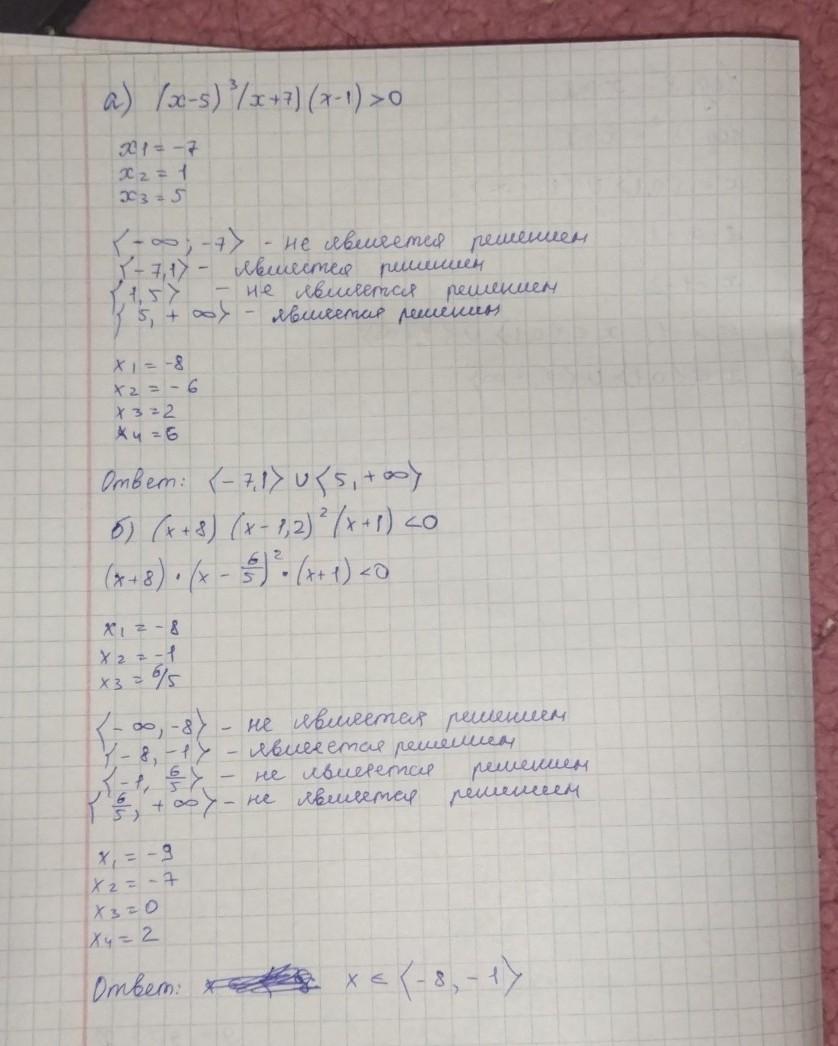 а) (x-5)³(x+7)(x-1)>0
x1 = -7
x2 = 1
x3 = 5
⟨-∞; -7⟩ - не является решением
⟨-7,1⟩ - является решением
⟨1,5⟩ - не является решением
⟨5, +∞⟩ - является решением
x1 = -8
x2 = -6
x3 = 2
x4 = 6
Ответ: ⟨-7,1⟩ ∪ ⟨5, +∞⟩
б) (x+8) (x-1,2)² (x+1) <0
(x+8) · (x - 6/5)² · (x+1) <0
x1 = -8
x2 = -1
x3 = 6/5
⟨-∞, -8⟩ - не является решением
⟨-8, -1⟩ - является решением
⟨-1, 6/5⟩ - не является решением
⟨6/5, +∞⟩ - не является решением
x1 = -9
x2 = -7
x3 = 0
x4 = 2
Ответ: x ∈ ⟨-8, -1⟩